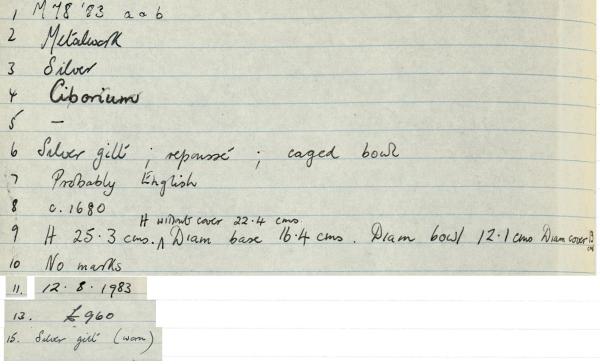 1 M78 '83 a a b
2 Metalwork
3 Silver
4 Ciborium
5 -
6 Silver gilt ; repoussé ; caged bowl
7 Probably English
8 c. 1680
H without cover 22.4 cms.
9 H 25.3 cms. ^ Diam base 16.4 cms. Diam bowl 12.1 cms Diam cover 13 cms
10 No marks
11. 12.8.1983
13. £960
15. Silver gilt (worn)